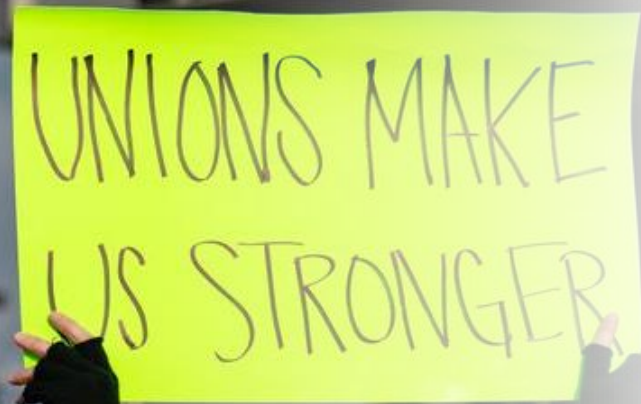 UNIONS MAKE
US STRONGER